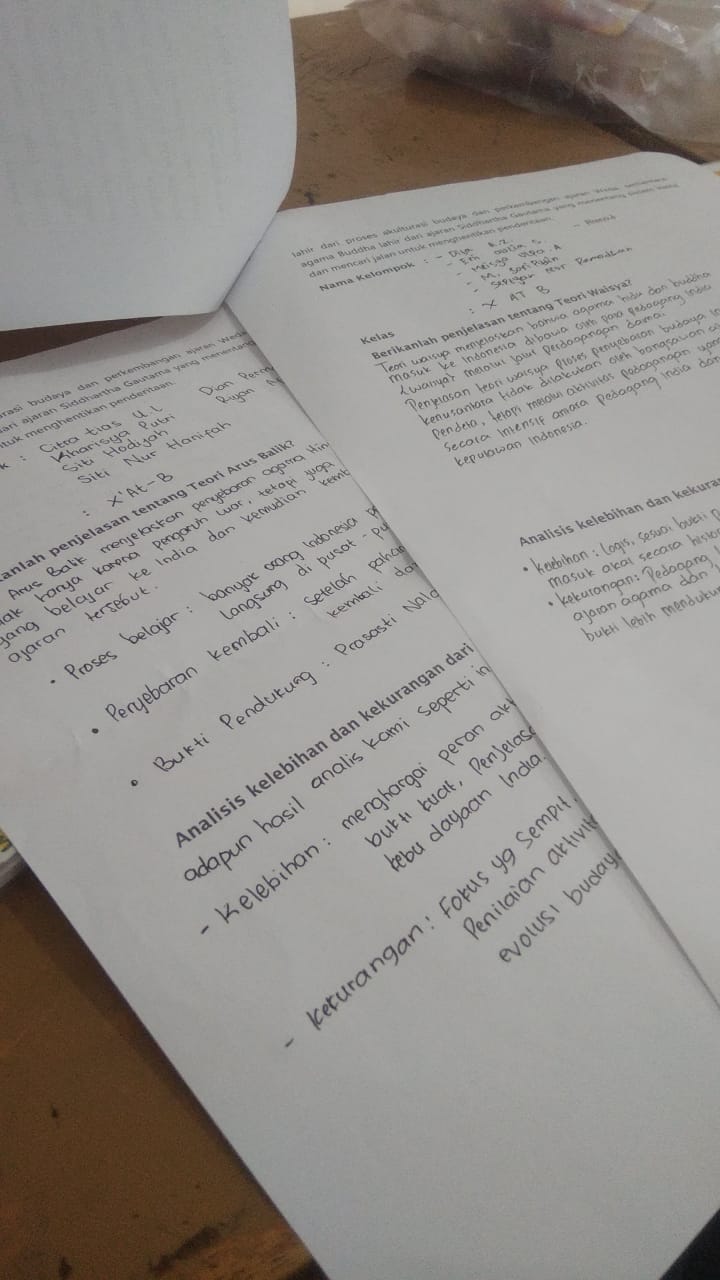 lahir dari proses akulturasi budaya dan perkembangan ajaran Weda, sementara
agama Buddha lahir dari ajaran Siddhartha Gautama yang menentang sistem kasta
dan mencari jalan untuk menghentikan penderitaan.
Nama Kelompok : - Diya A.Z.
- Eni aulia S.
- M. Sari Putin
Kelas : X AT B
Berikanlah penjelasan tentang Teori Waisya?
Teori waisya menjelaskan bahwa agama hidu dan buddha
masuk ke Indonesia dibawa oleh para pedagang India
(waisya) melalui jalur perdagangan damai.
Penjelasan teori waisya proses penyebaran budaya In
kenusantara tidak dilakukan oleh bangsawan a
pendeta, tetapi melalui aktivitas pedagangan yan
secara intensif antara pedagang India dan
kepulauan Indonesia.
Analisis kelebihan dan kekura
• kelebihan : Logis, sesuai bukti p
masuk akal secara histo
• kekurangan: Pedagang
ajaran agama dan
bukti lebih menduku
rasi budaya dan perkembangan ajaran Weda
ari ajaran Siddhartha Gautama yang menentang
tuk menghentikan penderitaan.
k : Citra tias U.L
Kharisya Putri
Siti Hodijah
Siti Nur Hanifah
: X'At-B
anlah penjelasan tentang Teori Arus Balik?
Arus Balik menjelaskan penyebaran agama Hin
dak hanya karena pengaruh luar, tetapi juga
yang belajar ke India dan kemudian kemb
ajaran tersebut.
• Proses belajar : banyak orang Indonesia
langsung di pusat - pu
• Penyebaran kembali : Setelah paham
kembali dan
• Bukti Pendukung : Prasasti Nala
Analisis kelebihan dan kekurangan dari
adapun hasil analis kami seperti in
- Kelebihan : menghargai peran akt
bukti kuat, Penjelasa
kebu dayaan India.
- kekurangan : Fokus yg sempit.
Penilaian aktivit
evolusi budaya